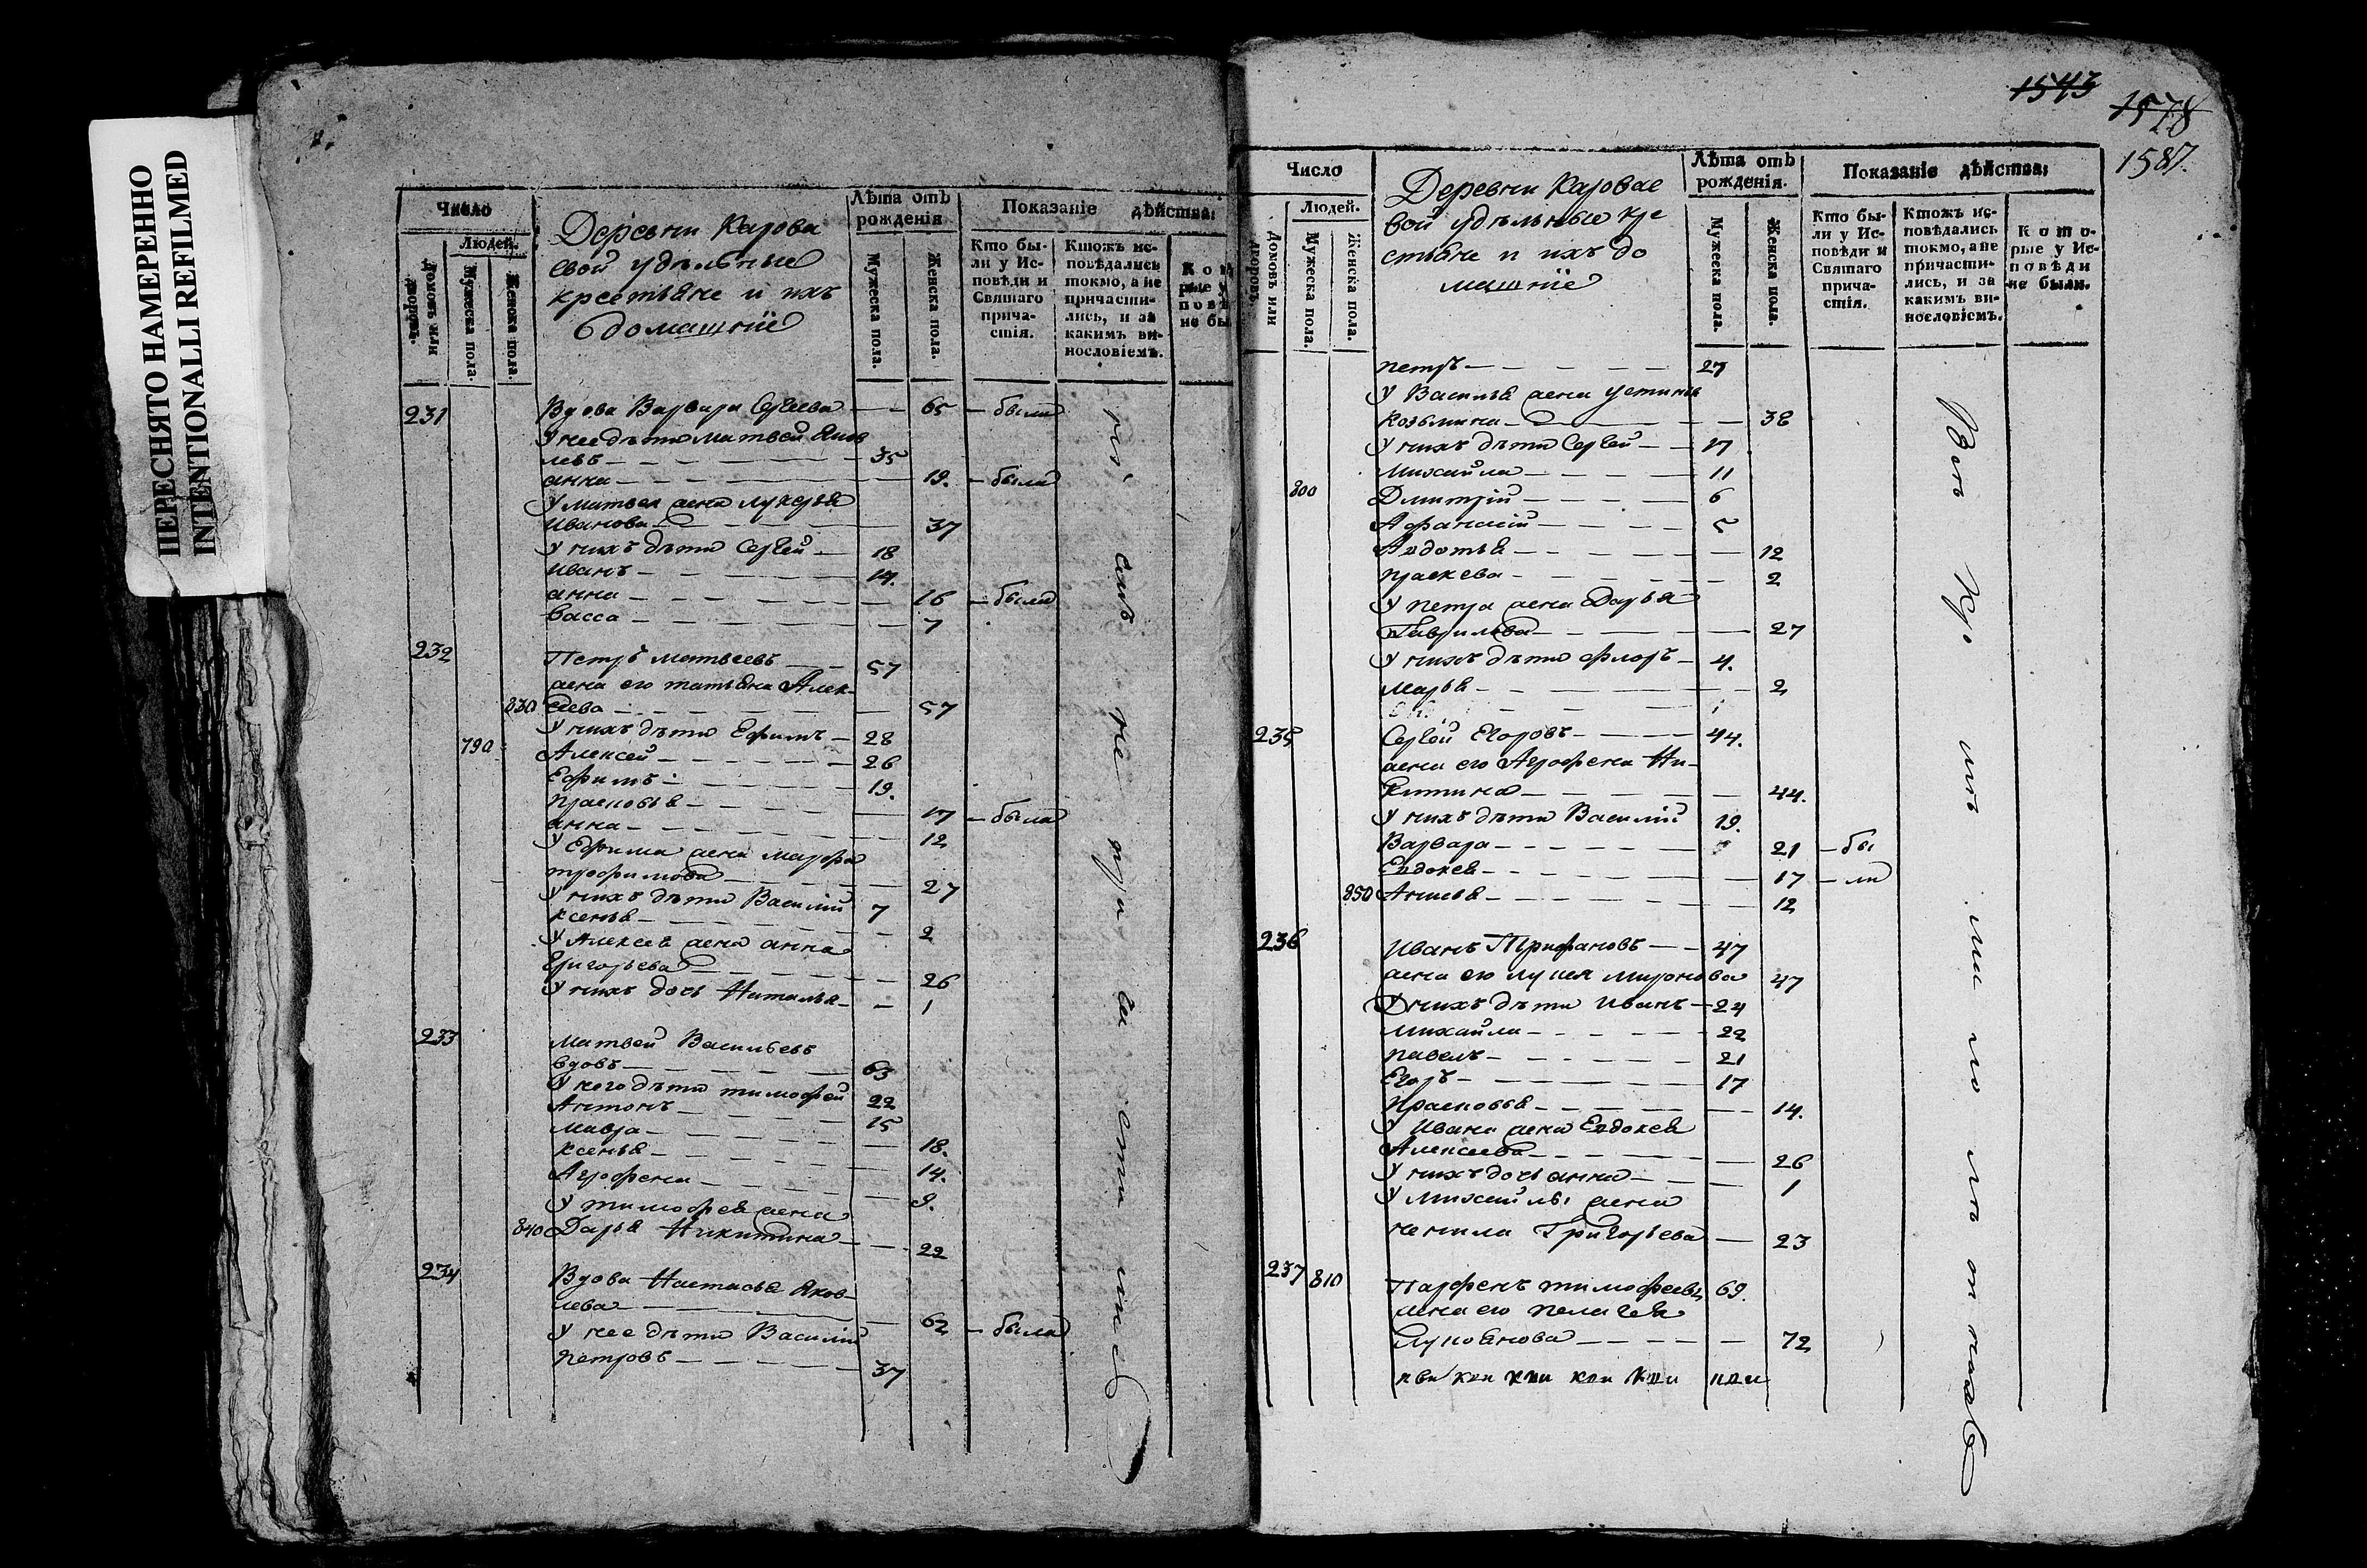 ПЕРЕСНЯТО НАМЕРЕННО
INTENTIONALLI REFILMED
Число
Людей.
Домовъ или дворовъ.
Мужеска пола.
Женска пола.
Деревни Карова
евой удѣльные
крестьяне и ихъ
домашніе
Лѣта отъ рожденія
Мужеска пола.
Женска пола.
Показаніе дѣйства:
Кто бы-
ли у Ис-
повѣди и
Святаго
прича-
стія.
Ктожъ ис-
повѣдались
токмо, а не
причасти-
лись, и за
какимъ ви-
нословіемъ.
231 Вдова Варвара Сергеева — 65 — была
У нее дѣти Матвей Яков
левъ — 35
анна — 19. — была
У матвея жена лукерья
Иванова — 37
У нихъ дѣти Сергей — 18
Иванъ — 14.
анна — 16 — была
Васса — 7
232 Петръ матвеевъ — 57
жена его татьяна Алек-
830 сеева — 57
У нихъ дѣти Ефимъ — 28
790 Алексей — 26
Ефимъ — 19.
Прасковья — 17 — была
анна — 12
У Ефима жена марфа
трофимова — 27
У нихъ дѣти Василій 7
ксенья — 2
У Алексея жена анна
Григорьева — 26
У нихъ дочь Наталья — 1
233 Матвей Васильевъ
вдовъ — 63
У него дѣти тимофей 22
Антонъ — 15
мавра — 18.
ксенья — 14.
Агрофена — 9.
У тимофея жена
840 Дарья Никитина — 22
234 Вдова Настасья Яков-
лева — 62 — была
У нее дѣти Василій
Петровъ — 37
1543
1578
1587.
Число
Людей.
Домовъ или дворовъ.
Мужеска пола.
Женска пола.
Деревни Каровае
вой удѣльные кре
стьяне и ихъ до
машніе
Лѣта отъ рожденія.
Мужеска пола.
Женска пола.
Показаніе дѣйства:
Кто бы-
ли у Ис-
повѣди и
Святаго
прича-
стія.
Ктожъ ис-
повѣдались
токмо, а не
причасти-
лись, и за
какимъ ви-
нословіемъ.
Кото-
рые у Ис-
повѣди
не были.
петръ — 27
У Василья жена устинья
Козьмина — 38
У нихъ дѣти Сергей — 17
Михайла — 11
800 Дмитрій — 6
Афанасій — 5
Авдотья — 12
праскева — 2
У петра жена Дарья
Гаврилова — 27
У нихъ дѣти флоръ — 4.
марья — 2
235 Сергей Егоровъ — 44.
жена его Агрофена Ни-
китина — 44.
У нихъ дѣти Василій 19.
Варвара — 21 — бы
Евдокея — 17 — ли
850 Анисья — 12
236 Иванъ Трифановъ — 47
жена его лукея миронова 47
У нихъ дѣти Иванъ — 24
михайла — 22
павелъ — 21
Егоръ — 17
Прасковья — 14.
У Ивана жена Евдокея
Алексеева — 26
У нихъ дочь анна — 1
У михайлы жена
ненила Григорьева — 23
237 810 Парфенъ тимофеевъ 69.
жена его пелагея
Лукоянова — 72